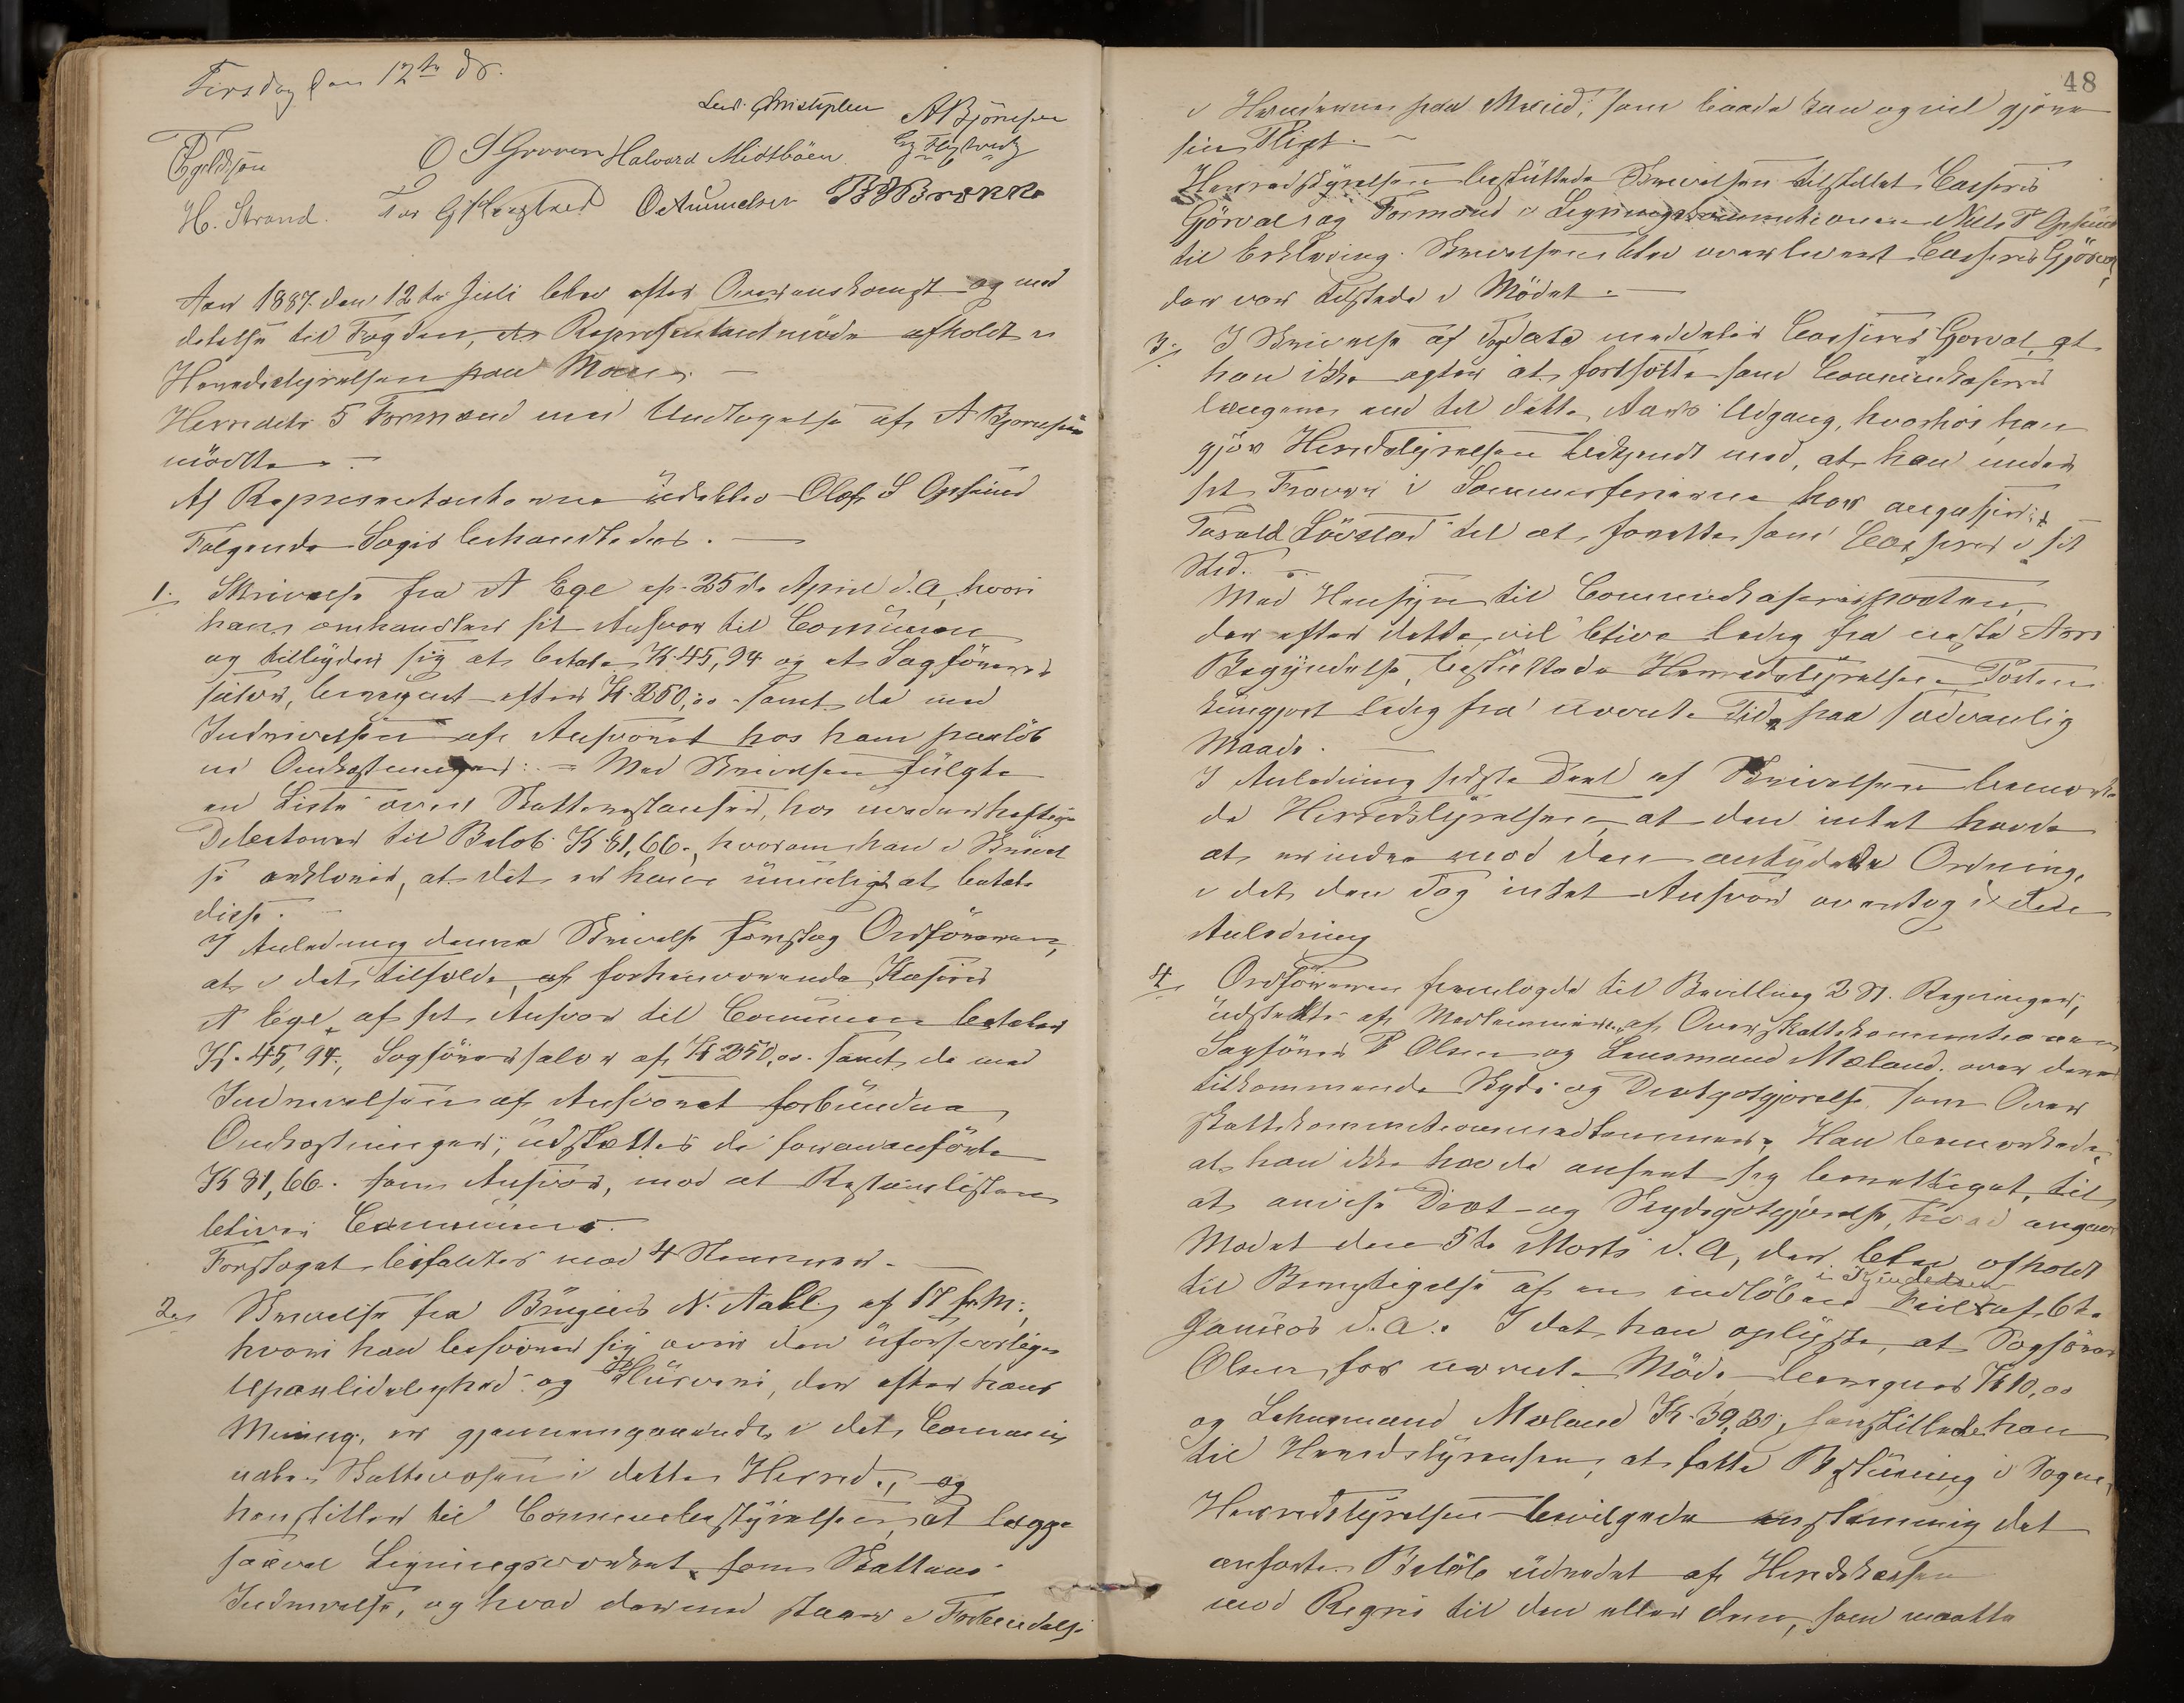 Tirsdag den 12te ds.
Lud. Christophersen A Björnsen
Egeldsøn O S Groven Halvord Midtböen
H. Strand. Tor G O Amundsen B B Brekke
Aar 1887 den 12te Juli blev efter Overenskomst og med
delelse til Fogden, et Representantmöde afholdt i
Herredsstyrelsen paa Moen. —
Herredets 5 Formænd med Undtagelse af A Bjørnsen
mödte. —
Af Representanterne udeblev Olaf S Opsund
Følgende Sager behandledes. —
1. Skrivelse fra A Ege af 25de April d.A, hvori
han omhandler sit Ansvar til Comunen
og tilbyder sig at betale K. 45,94 og at Sagförer
salær, beregnet efter K. 250,00 samt de med
Inddrivelsen af Ansvaret hos ham paaløb
ne Omkostninger. — Med Skrivelsen fulgte
en Liste over Skatterestanser, hos uvederhæftige
Debitorer til Beløb K 81,66, hvorom han i Skrivel
se erklærer, at det er ham umuligt at betale
disse. —
I Anledning denne Skrivelse foreslog Ordföreren,
at i det tilfælde, at forhenværende Kasserer
A Ege, af sit Ansvar til Comunen betaler
K. 45,94, Sagförersalær af K 250,00 samt de med
Inddrivelsen af Ansvaret forbundne
Omkostninger, udsættes de foranansførte
K 81,66. som Ansvar, mod at Restancelisten
bliver Communens.
Forslaget bifaldtes mod 4 Stemmer. —
2. Skrivelse fra Brugeier N. Aall, af 17 f.M.,
hvori han besværer sig over den uforsvarlige
Upaalidelighed og Slurveri, der efter hans
Mening, er gjennemgaaende i det Commu
nale Skattevæsen i dette Herred, og
henstiller til Communebestyrelsen at lægge
saavel Ligningsværket som Skattens
Inddrivelse, og hvad dermed staar i Forbindelse
48
i Hænderne paa Mænd, som baade kan og vil gjøre
sin Pligt. —
Herredsstyrelsen besluttede Skrivelsen tilstillet Casserer
Görval, og Formand i Ligningskommissionen Niels P Opsund
til Erklæring. Skrivelsen blev overleveret Casserer Görval,
der var tilstede i Mödet. —
3. I Skrivelse af Dags Dato meddeler Casserer Gorval, at
han ikke agter at fortsætte som Communekasserer
længere end til dette Aars Udgang, hvorhos han
gjör Herredsstyrelsen bekjendt med, at han under
sit Fravær i Sommerferierne har angasjeret
Torald Lövstad til at forrette som Casserer i sit
Sted. —
Med Hensyn til Communekassererposten,
der efter dette vil blive ledig fra næste Aars
Begyndelse, besluttede Herredsstyrelsen Posten
kungjort ledig fra nævnte Tid, paa sædvanlig
Maade. —
I Anledning sidste Deel af Skrivelsen bemærke
de Herredsstyrelsen, at den intet havde
at erindre mod den antydede Ordning,
i det den dog intet Ansvar overtog i den
Anledning
4. Ordföreren fremlagde til Bevilling 2 St. Regninger,
udstedte af Medlemmerne af Overskattekommissionen
Sagförer P Olsen og Lensmand Mæland over deres
tilkommende Skyds og Diætgodgjørelse som Over
skattekommissionsmedlemmer. Han bemærkede,
at han ikke havde anseet sig berettiget til
at anvise Diæt- og Skydsgodgjörelse, hvad angaar
Mødet den 5te Marts d. A, der blev afholdt
til Berigtigelse af en indlöben Feil i Kjendelsen af 6te
Januar d. A. I det han oplyste, at Sagförer
Olsen for nævnte Möde beregner K 10,00
og Lensmand Mæland K. 39,31, henstillede han
til Herredsstyrelsen, at fatte Beslutning i Sagen,
Herredsstyrelsen bevilgede enstemmig det
anførte Belöb udredet af Herredskassen
mod Regres til den eller dem, som maatte